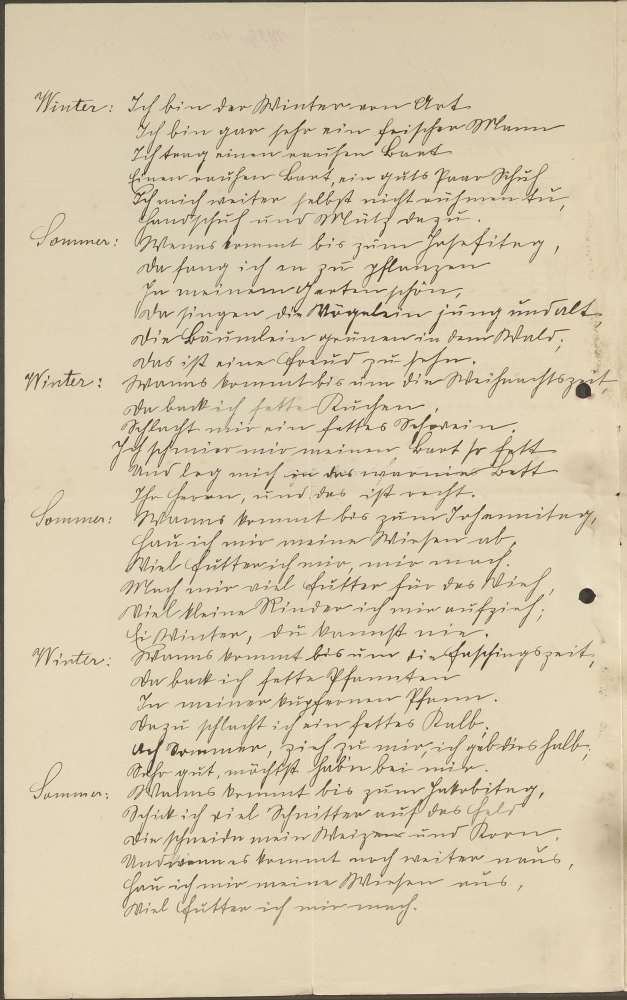 Winter: Ich bin der Winter von Art
Ich bin gar sehr ein frischer Mann
Ich trag einen rauhen Bart
Einen rauhen Bart, ein guts Paar Schuh
Ich mich weiter selbst nicht rühmen tu,
Handschuh und Mütz dazu.
Sommer: Wenns kommt bis zum Josefitag,
Da fang ich an zu pflanzen
In meinem Garten schön,
Da singen die Vögelein jung und alt
Die Bäumlein grünen in dem Wald,
Das ist eine Freud zu sehn.
Winter: Wanns kommt bis um die Weihnachtszeit,
Da back ich fette Kuchen,
Schlacht mir ein fettes Schwein.
Ich schmier mir meinen Bart so fett
Und leg mich in das warme Bett
Ihr Herrn, und das ist recht.
Sommer: Wanns kommt bis zum Johannitag,
Hau ich mir meine Wiesen ab,
Viel Futter ich mir, mir mach.
Mach mir viel Futter für das Vieh,
Viel kleine Rinder ich mir aufzieh,
Ei Winter, du kannst nie.
Winter: Wanns kommt bis um die Faschingszeit,
Da back ich fette Pfannken
In meiner kupfernen Pfann.
Dazu schlacht ich ein fettes Kalb,
Ach Sommer, zieh zu mir, ich geb dirs halb,
Sehr gut, möchtst hab'n bei mir.
Sommer: Wanns kommt bis zum Jakobitag,
Schick ich viel Schnitter auf das Feld
Die schneidn mein Weizen und Korn.
Und wann es kommt noch weiter naus,
Hau ich mir meine Wiesen aus,
Viel Futter ich mir mach.